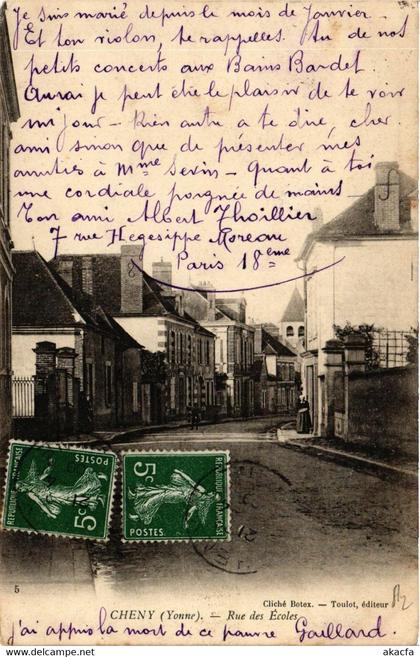 Je suis marié depuis le mois de Janvier.
Et ton violon, te rappelles Tu de nos
petits concerts aux Bains Bardet
Aurai je peut être le plaisir de te voir
un jour - Rien autre a te dire, cher
ami sinon que de présenter mes
amitiés à Mme Serin - Quant à toi
une cordiale poignée de mains
Ton ami Albert Thoillier
7 rue Hegesippe Moreau
Paris 18eme
REPUBLIQUE FRANÇAISE
5c POSTES
REPUBLIQUE FRANÇAISE
5c POSTES
5
Cliché Botex. — Toulot, éditeur
CHENY (Yonne). — Rue des Écoles
j'ai appris la mort de ce pauvre Gaillard.
www.akcfa.com